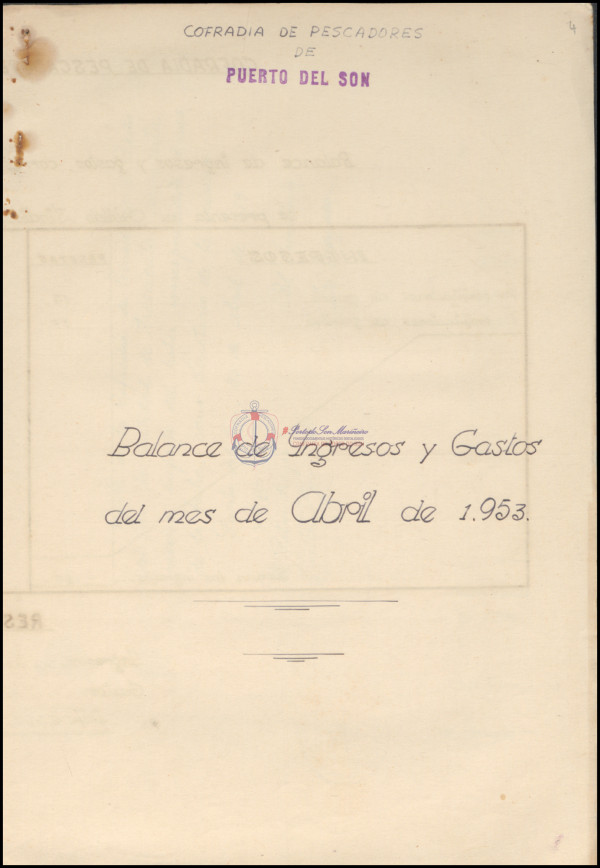 4
COFRADIA DE PESCADORES
DE
PUERTO DEL SON
Balance de Ingresos y Gastos
del mes de Abril de 1.953.